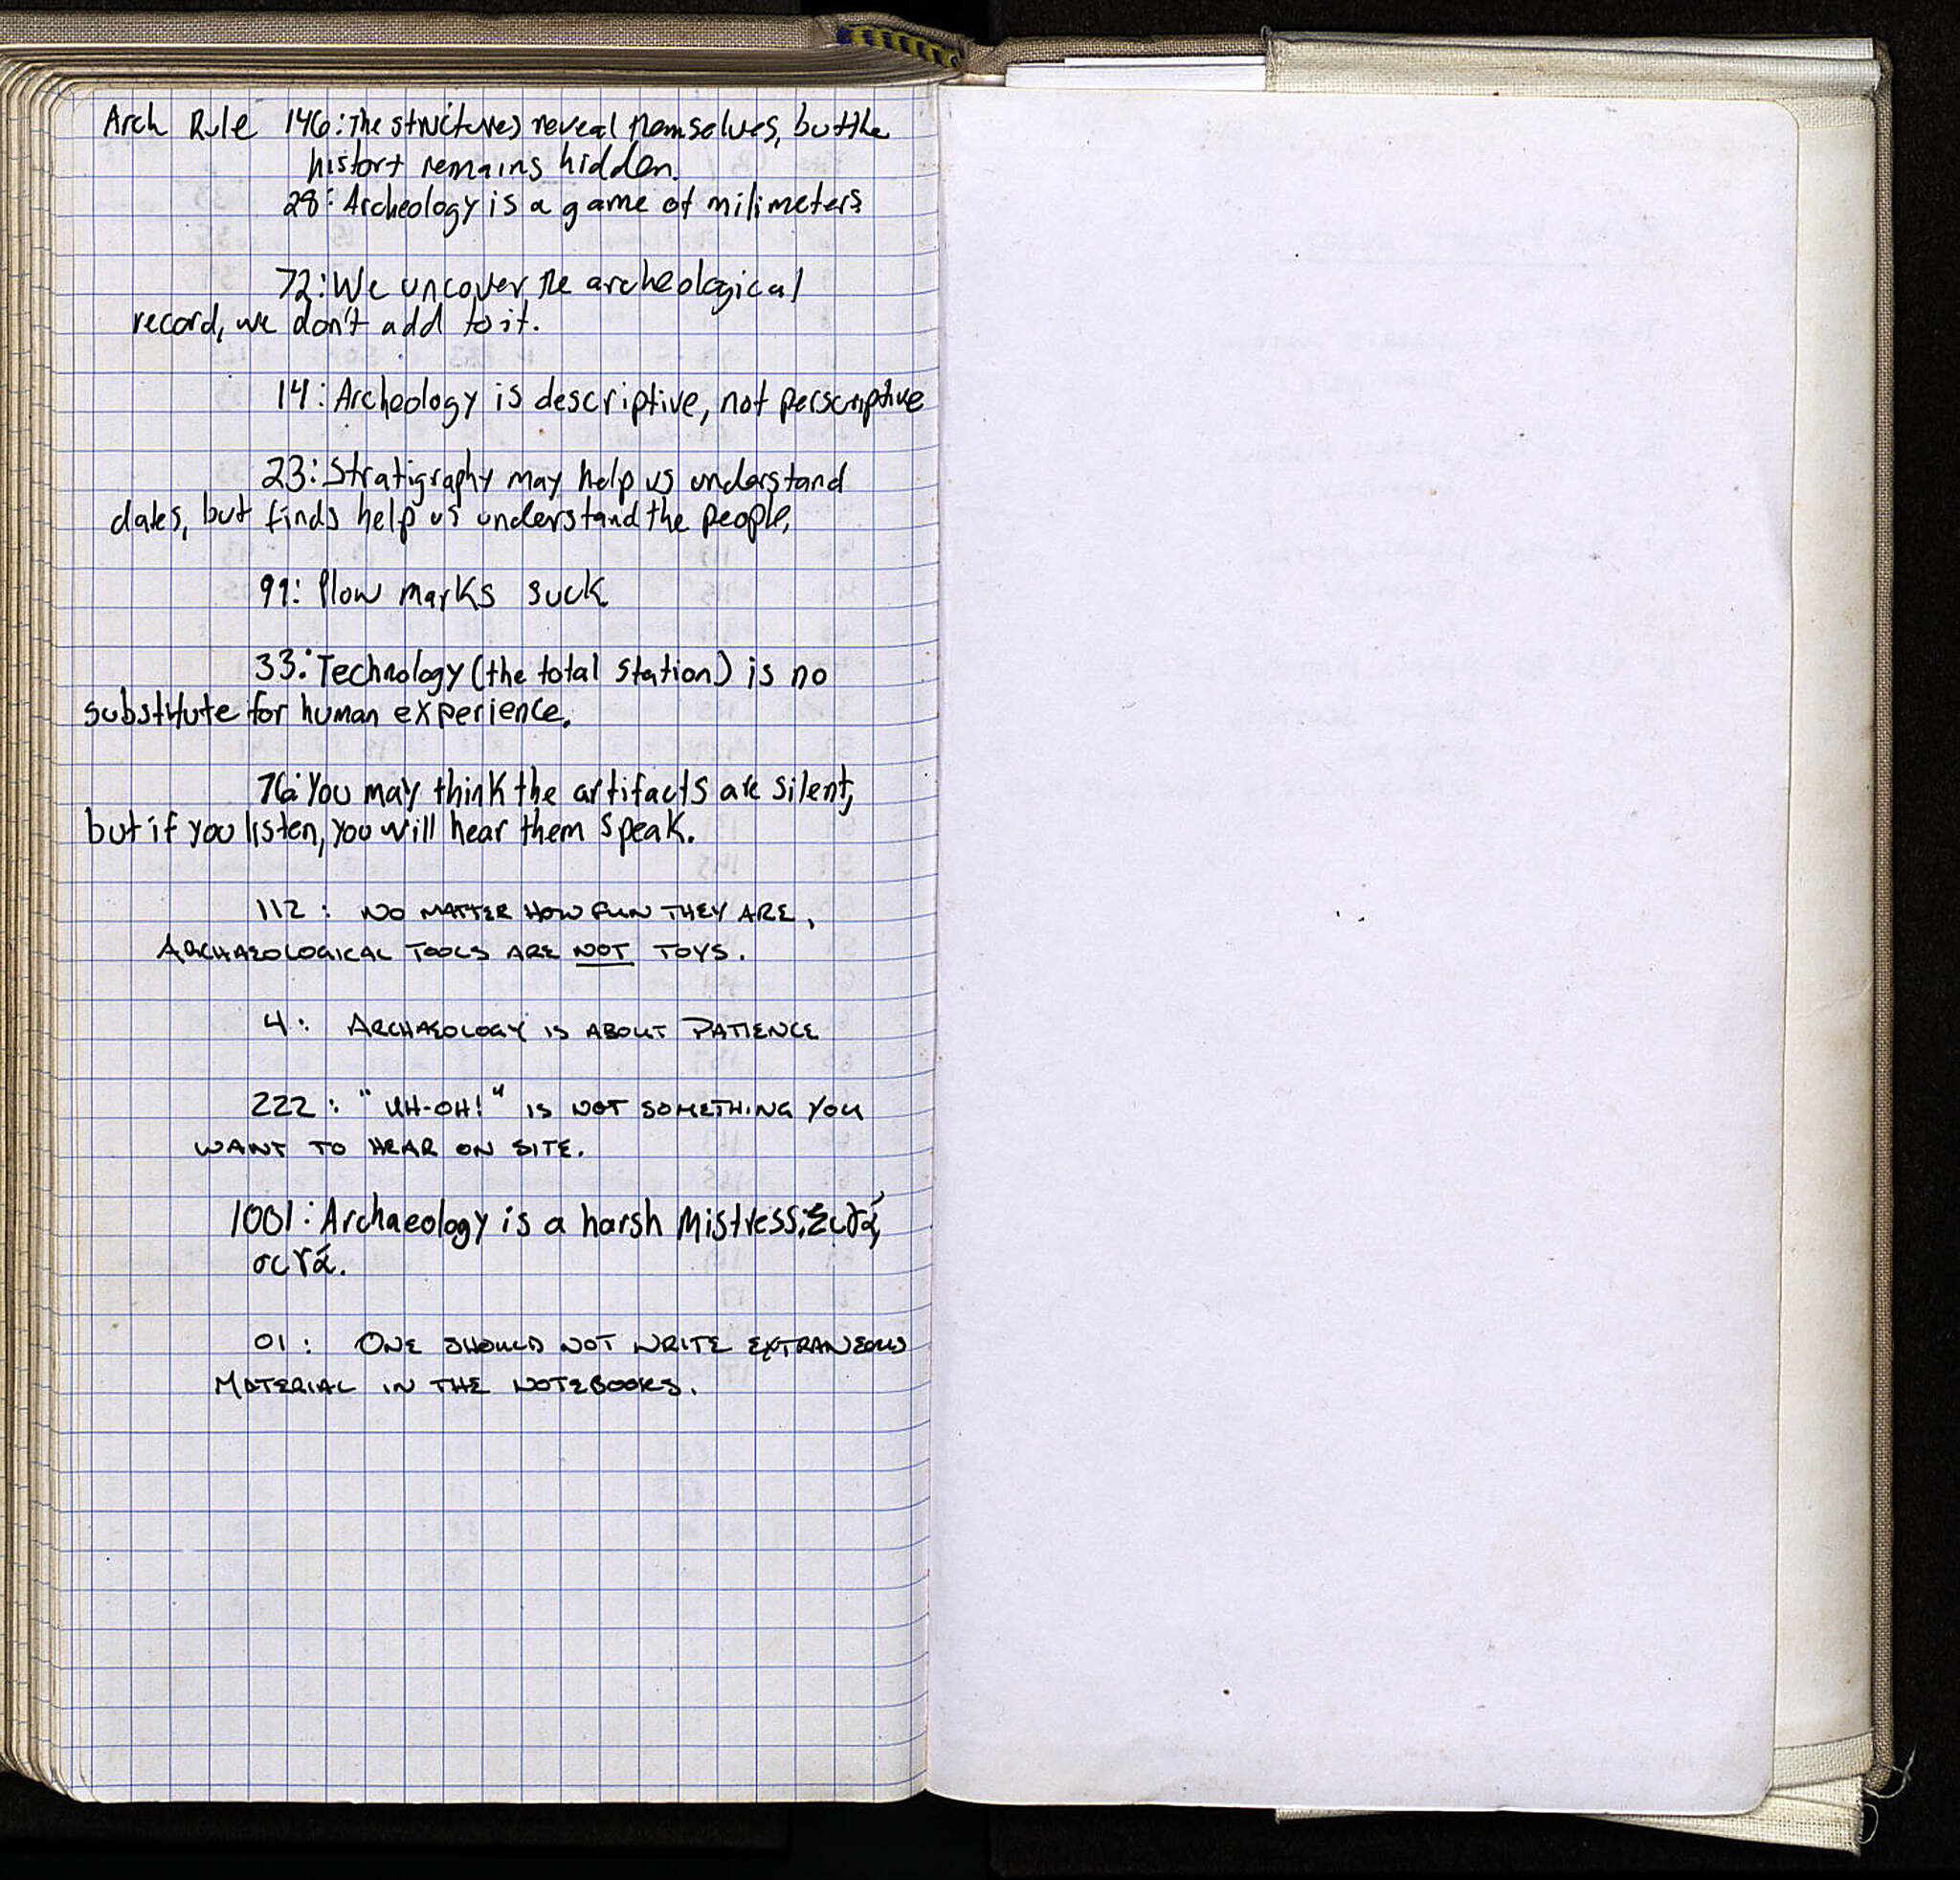 Arch Rule 146: The structures reveal themselves, but the
history remains hidden.
28: Archeology is a game of milimeters
72: We uncover the archeological
record, we don't add to it.
14: Archeology is descriptive, not perscriptive
23: Stratigraphy may help us understand
dates, but finds help us understand the people.
99: Plow marks suck
33: Technology (the total station) is no
substitute for human experience.
76: You may think the artifacts are silent,
but if you listen, you will hear them speak.
112: NO MATTER HOW FUN THEY ARE,
ARCHAEOLOGICAL TOOLS ARE NOT TOYS.
4: ARCHAEOLOGY IS ABOUT PATIENCE
222: "UH-OH!" IS NOT SOMETHING YOU
WANT TO HEAR ON SITE.
1001: Archaeology is a harsh Mistress; Σιγά,
σιγά.
01: ONE SHOULD NOT WRITE EXTRANEOUS
MATERIAL IN THE NOTEBOOKS.